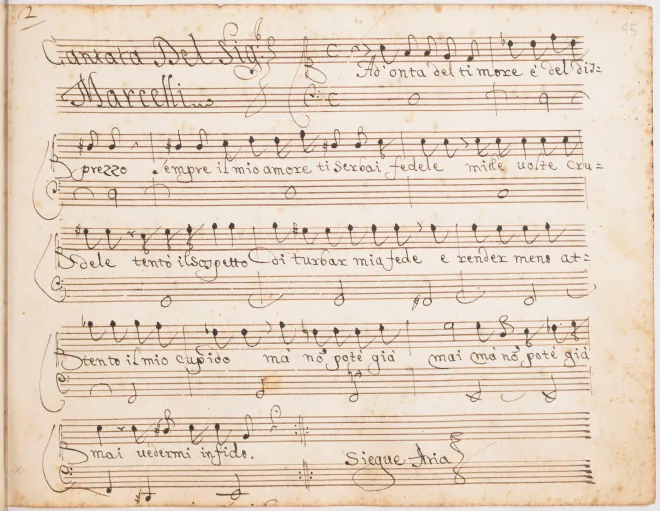 2
95
Cantata Del Sigr
Marcelli
Ad onta del timore e del dis=
prezzo sempre il mio amore ti serbai fedele mille uolte Cru=
dele tentò il sospetto di turbar mia fede e render meno at=
tento il mio cupido ma nò potè già mai ma nò potè già
mai uedermi infido.
Siegue Aria